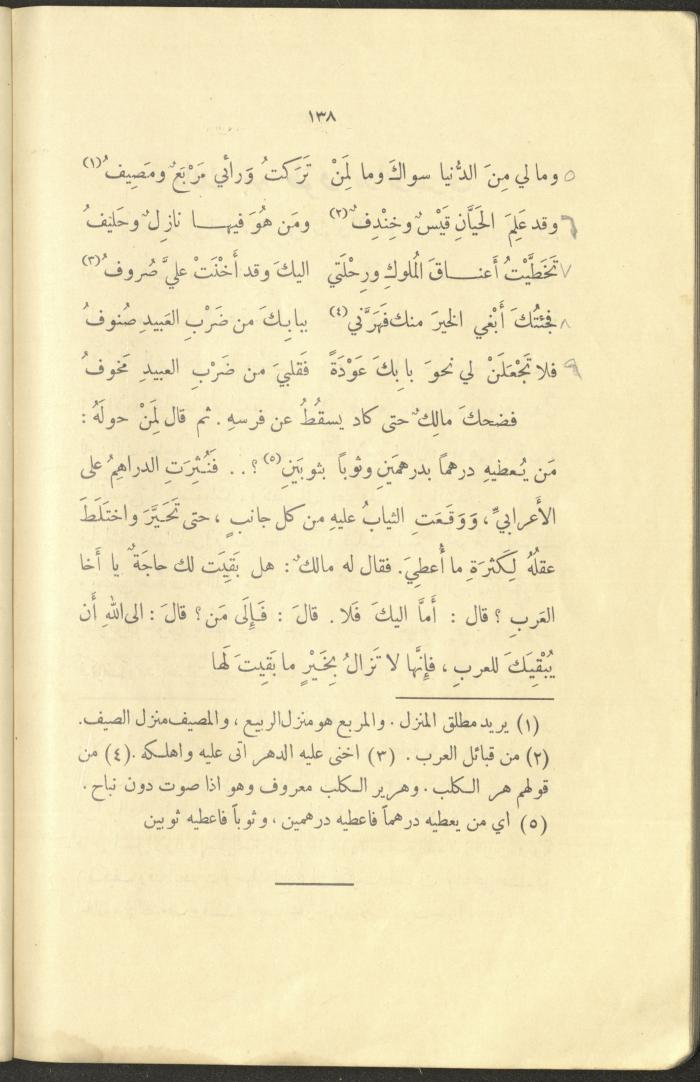 ١٣٨
٥ وما لي مِنَ الدُّنيا سواكَ وما لِمَنْ تَرَكتُ وَرائي مَرْبَعٌ ومَصِيفُ(١)
٦ وقد عَلِمَ الحَيَّانِ قَيْسٌ وخِنْدِفٌ(٢) ومَن هُوَ فيها نازِلٌ وحَليفُ
٧ تَخَطَّيْتُ أَعناقَ المُلوكِ ورِحْلَتي اليكَ وقد أَخْنَتْ عليَّ صُروفُ(٣)
٨ فجئتُكَ أَبْغي الخيرَ منك فَهَرَّني(٤) ببابِكَ من ضَرْبِ العَبيدِ صُنوفُ
٩ فلا تَجْعَلَنْ لي نحوَ بابِكَ عَوْدَةً فَقلبيَ من ضَرْبِ العبيدِ مَخوفُ
فضحكَ مالِكٌ حتى كاد يسقُطُ عن فرسهِ . ثم قال لِمَنْ حولَهُ :
مَن يُعطيهِ درهماً بدرهمَينِ وثوباً بثوبَينِ(٥) ؟ . . فَنُثِرَتِ الدراهِمُ على
الأَعرابيِّ ، وَوَقَعَتِ الثيابُ عليهِ من كل جانبٍ ، حتى تَحَيَّرَ واختَلَطَ
عقلُهُ لِكَثرَةِ ما أُعطِيَ. فقال له مالكٌ : هل بَقِيَت لك حاجَةٌ يا أَخا
العَربِ ؟ قال : أَمَّا اليكَ فَلا . قالَ : فَإِلَى مَن ؟ قالَ : الى اللهِ أَن
يُبْقِيَكَ للعربِ ، فإِنَّها لا تَزالُ بِخَيْرٍ ما بَقِيتَ لَها
(١) يريد مطلق المنزل . والمربع هو منزل الربيع ، والمصيف منزل الصيف.
(٢) من قبائل العرب . (٣) اخنى عليه الدهر اتى عليه واهلكه .(٤) من
قولهم هر الكلب . وهرير الكلب معروف وهو اذا صوت دون نباح .
(٥) اي من يعطيه درهماً فاعطيه درهمين ، وثوباً فاعطيه ثوبين